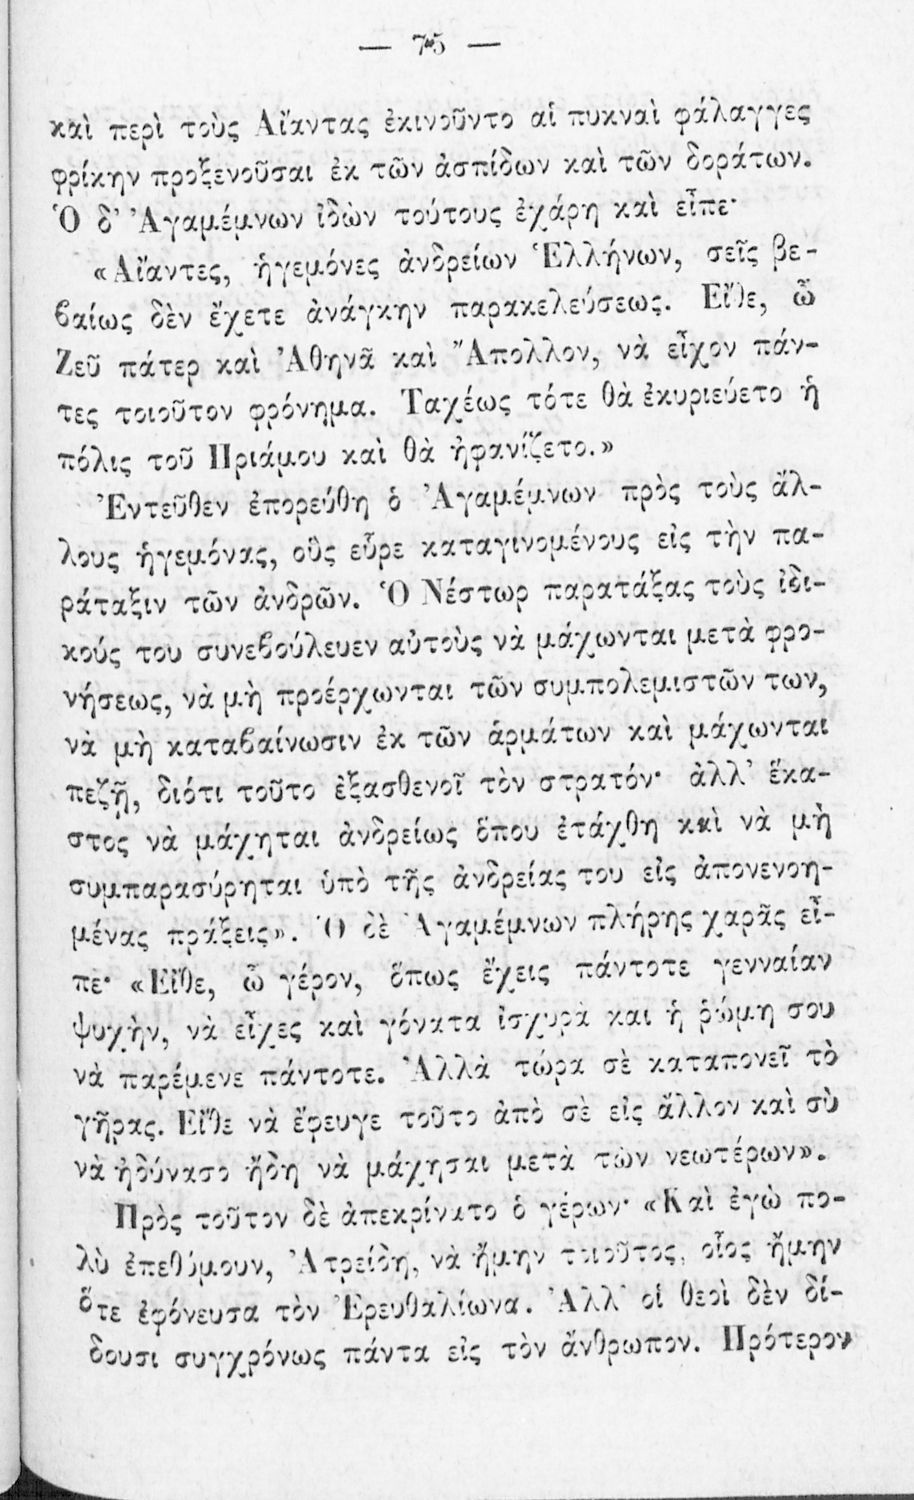 — 75 —
καὶ περὶ τοὺς Αἴαντας ἐκινοῦντο αἱ πυκναὶ φάλαγγες
φρίκην προξενοῦσαι ἐκ τῶν ἀσπίδων καὶ τῶν δοράτων.
Ὁ δ' Ἀγαμέμνων ἰδὼν τούτους ἐχάρη καὶ εἶπε·
«Αἴαντες, ἡγεμόνες ἀνδρείων Ἑλλήνων, σεῖς βε-
ϐαίως δὲν ἔχετε ἀνάγκην παρακελεύσεως. Εἴθε, ὦ
Ζεῦ πάτερ καὶ Ἀθηνᾶ καὶ Ἄπολλον, νὰ εἶχον πάν-
τες τοιοῦτον φρόνημα. Ταχέως τότε θὰ ἐκυριεύετο ἡ
πόλις τοῦ Πριάμου καὶ θὰ ἠφανίζετο.»
Ἐντεῦθεν ἐπορεύθη ὁ Ἀγαμέμνων πρὸς τοὺς ἄλ-
λους ἡγεμόνας, οὓς εὗρε καταγινομένους εἰς τὴν πα-
ράταξιν τῶν ἀνδρῶν. Ὁ Νέστωρ παρατάξας τοὺς ἰδι-
κούς του συνεϐούλευεν αὐτοὺς νὰ μάχωνται μετὰ φρο-
νήσεως, νὰ μὴ προέρχωνται τῶν συμπολεμιστῶν των,
νὰ μὴ καταϐαίνωσιν ἐκ τῶν ἁρμάτων καὶ μάχωνται
πεζῇ, διότι τοῦτο ἐξασθενοῖ τὸν στρατόν· ἀλλ' ἕκα-
στος νὰ μάχηται ἀνδρείως ὅπου ἐτάχθη καὶ νὰ μὴ
συμπαρασύρηται ὑπὸ τῆς ἀνδρείας του εἰς ἀπονενοη-
μένας πράξεις». Ὁ δὲ Ἀγαμέμνων πλήρης χαρᾶς εἶ-
πε· «Εἴθε, ὦ γέρον, ὅπως ἔχεις πάντοτε γενναίαν
ψυχὴν, νὰ εἶχες καὶ γόνατα ἰσχυρὰ και ἡ ῥώμη σου
νὰ παρέμενε πάντοτε. Ἀλλὰ τώρα σὲ καταπονεῖ τὸ
γῆρας. Εἴθε νὰ ἔφευγε τοῦτο ἀπὸ σὲ εἰς ἄλλον καὶ σὺ
νὰ ἠδύνασο ἤδη νὰ μάχησαι μετὰ τῶν νεωτέρων».
Πρὸς τοῦτον δὲ ἀπεκρίνατο ὁ γέρων· «Καὶ ἐγὼ πο-
λὺ ἐπεθύμουν, Ἀτρείδη, νὰ ἤμην τοιοῦτος, οἷος ἤμην
ὅτε ἐφόνευσα τὸν Ἐρευθαλίωνα. Ἀλλ' οἱ θεοὶ δὲν δί-
δουσι συγχρόνως πάντα εἰς τὸν ἄνθρωπον. Πρότερον